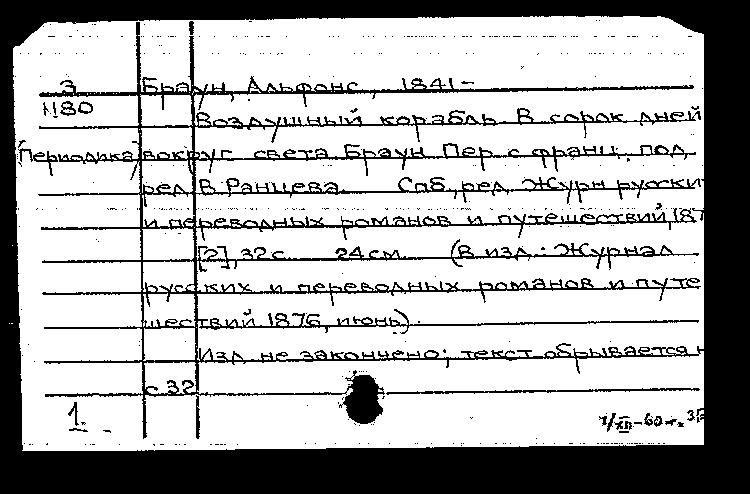 3 Браун, Альфонс, 1841-
М80
Воздушный корабль В сорок дней
(Периодика) вокруг света Браун Пер с франц. под.
ред В Ранцева. Спб, ред. Журн русски
и переводных романов и путешествий, 187
[2], 32 с 24 см (В изд.: Журнал
русских и переводных романов и путе
шествий 1876, июнь).
Изд не закончено; текст обрывается н
с 32
1.
-60